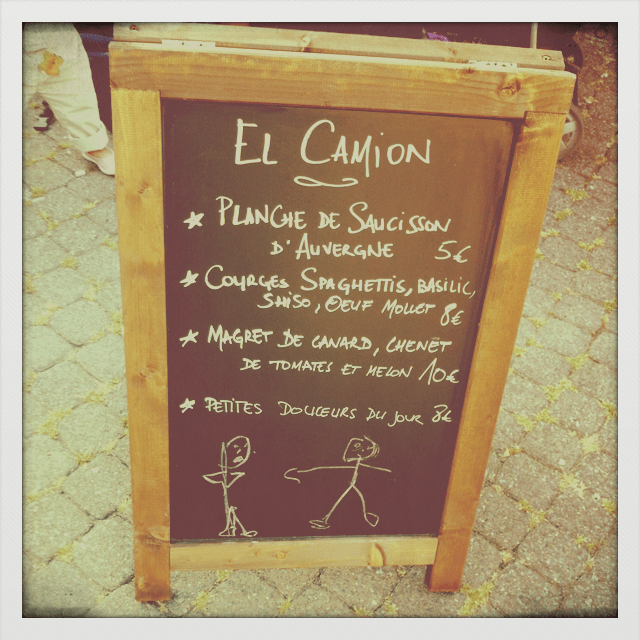 EL CAMION
PLANCHE DE SAUCISSON
D'AUVERGNE 5€
COURGES SPAGHETTIS, BASILIC,
SHISO, OEUF MOLLET 8€
MAGRET DE CANARD, CHENET
DE TOMATES ET MELON 10€
PETITES DOUCEURS DU JOUR 8€